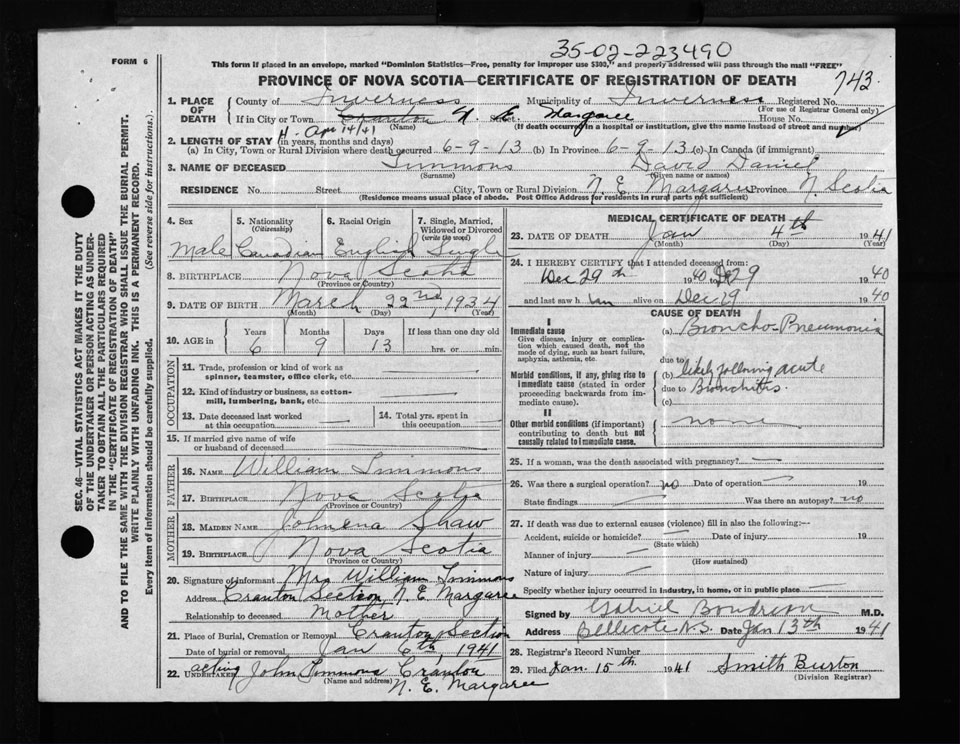 35-02-223490
FORM 6
This form if placed in an envelope, marked "Dominion Statistics—Free, penalty for improper use $300," and properly addressed will pass through the mail "FREE"
PROVINCE OF NOVA SCOTIA—CERTIFICATE OF REGISTRATION OF DEATH
743
1. PLACE OF DEATH
County of Inverness Municipality of Inverness Registered No.
(For use of Registrar General only)
If in City or Town Cranton N. E. Street Margaree House No.
(Name) (If death occurred in a hospital or institution, give the name instead of street and number)
H. Apr 14/41
2. LENGTH OF STAY (in years, months and days)
(a) In City, Town or Rural Division where death occurred 6-9-13 (b) In Province 6-9-13 (c) In Canada (if immigrant)
3. NAME OF DECEASED Timmons David Daniel
(Surname) (Given name or names)
RESIDENCE No. Street City, Town or Rural Division N. E. Margaree Province N. Scotia
(Residence means usual place of abode. Post Office Address for residents in rural parts not sufficient)
4. Sex 5. Nationality (Citizenship) 6. Racial Origin 7. Single, Married, Widowed or Divorced (write the word)
Male Canadian English Single
8. BIRTHPLACE Nova Scotia
(Province or Country)
9. DATE OF BIRTH March 22nd, 1934
(Month) (Day) (Year)
10. AGE in Years Months Days If less than one day old
6 9 13 hrs. or min.
OCCUPATION
11. Trade, profession or kind of work as spinner, teamster, office clerk, etc. —
12. Kind of industry or business, as cotton-mill, lumbering, bank, etc. —
13. Date deceased last worked at this occupation — 14. Total yrs. spent in this occupation —
15. If married give name of wife or husband of deceased
FATHER
16. NAME William Timmons
17. BIRTHPLACE Nova Scotia
MOTHER
18. MAIDEN NAME Johnena Shaw
19. BIRTHPLACE Nova Scotia
(Province or Country)
20. Signature of informant Mrs William Timmons
Address Cranton Section N. E. Margaree
Relationship to deceased Mother
21. Place of Burial, Cremation or Removal Cranton Section
Date of burial or removal, Jan 6th, 1941
22. acting UNDERTAKER John Timmons Cranton
(Name and address) N. E. Margaree
MEDICAL CERTIFICATE OF DEATH
23. DATE OF DEATH Jan 4th 1941
(Month) (Day) (Year)
24. I HEREBY CERTIFY that I attended deceased from:
Dec 29th 1940 to 29 1940
and last saw him alive on Dec 29 1940
CAUSE OF DEATH
I
Immediate cause (a) Broncho-Pneumonia
Give disease, injury or complication which caused death, not the mode of dying, such as heart failure, asphyxia, asthenia, etc.
due to
Morbid conditions, if any, giving rise to immediate cause (stated in order proceeding backwards from immediate cause).
(b) likely following acute
due to Bronchitis
(c)
II
Other morbid conditions (if important) contributing to death but not causally related to immediate cause.
none
25. If a woman, was the death associated with pregnancy? —
26. Was there a surgical operation? no Date of operation — 19
State findings — Was there an autopsy? no
27. If death was due to external causes (violence) fill in also the following:—
Accident, suicide or homicide? — Date of injury 19
(State which)
Manner of injury —
(How sustained)
Nature of injury —
Specify whether injury occurred in industry, in home, or in public place
Signed by Gabriel Boudreau M.D.
Address Bellecote N.S. Date Jan 13th 1941
28. Registrar's Record Number
29. Filed Jan. 15th 1941 Smith Burton
(Division Registrar)
SEC. 46—VITAL STATISTICS ACT MAKES IT THE DUTY
OF THE UNDERTAKER OR PERSON ACTING AS UNDER-
TAKER TO OBTAIN ALL THE PARTICULARS REQUIRED
IN THE "CERTIFICATE OF REGISTRATION OF DEATH"
AND TO FILE THE SAME WITH THE DIVISION REGISTRAR WHO SHALL ISSUE THE BURIAL PERMIT.
WRITE PLAINLY WITH UNFADING INK. THIS IS A PERMANENT RECORD.
Every item of information should be carefully supplied. (See reverse side for instructions.)